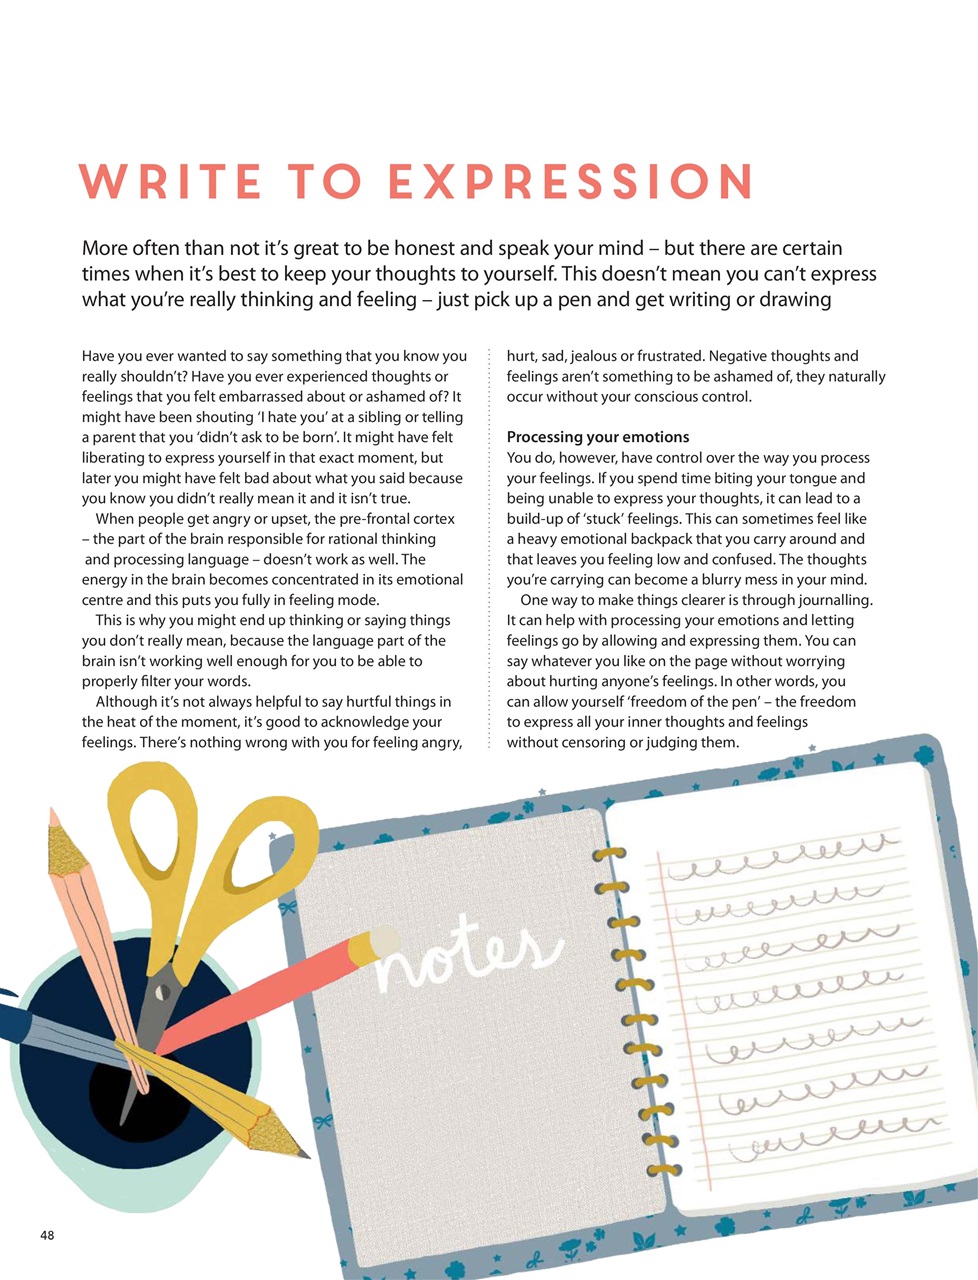 WRITE TO EXPRESSION
More often than not it’s great to be honest and speak your mind – but there are certain
times when it’s best to keep your thoughts to yourself. This doesn’t mean you can’t express
what you’re really thinking and feeling – just pick up a pen and get writing or drawing
Have you ever wanted to say something that you know you
really shouldn’t? Have you ever experienced thoughts or
feelings that you felt embarrassed about or ashamed of? It
might have been shouting ‘I hate you’ at a sibling or telling
a parent that you ‘didn’t ask to be born’. It might have felt
liberating to express yourself in that exact moment, but
later you might have felt bad about what you said because
you know you didn’t really mean it and it isn’t true.
When people get angry or upset, the pre-frontal cortex
– the part of the brain responsible for rational thinking
and processing language – doesn’t work as well. The
energy in the brain becomes concentrated in its emotional
centre and this puts you fully in feeling mode.
This is why you might end up thinking or saying things
you don’t really mean, because the language part of the
brain isn’t working well enough for you to be able to
properly filter your words.
Although it’s not always helpful to say hurtful things in
the heat of the moment, it’s good to acknowledge your
feelings. There’s nothing wrong with you for feeling angry,
hurt, sad, jealous or frustrated. Negative thoughts and
feelings aren’t something to be ashamed of, they naturally
occur without your conscious control.
Processing your emotions
You do, however, have control over the way you process
your feelings. If you spend time biting your tongue and
being unable to express your thoughts, it can lead to a
build-up of ‘stuck’ feelings. This can sometimes feel like
a heavy emotional backpack that you carry around and
that leaves you feeling low and confused. The thoughts
you’re carrying can become a blurry mess in your mind.
One way to make things clearer is through journalling.
It can help with processing your emotions and letting
feelings go by allowing and expressing them. You can
say whatever you like on the page without worrying
about hurting anyone’s feelings. In other words, you
can allow yourself ‘freedom of the pen’ – the freedom
to express all your inner thoughts and feelings
without censoring or judging them.
notes
48